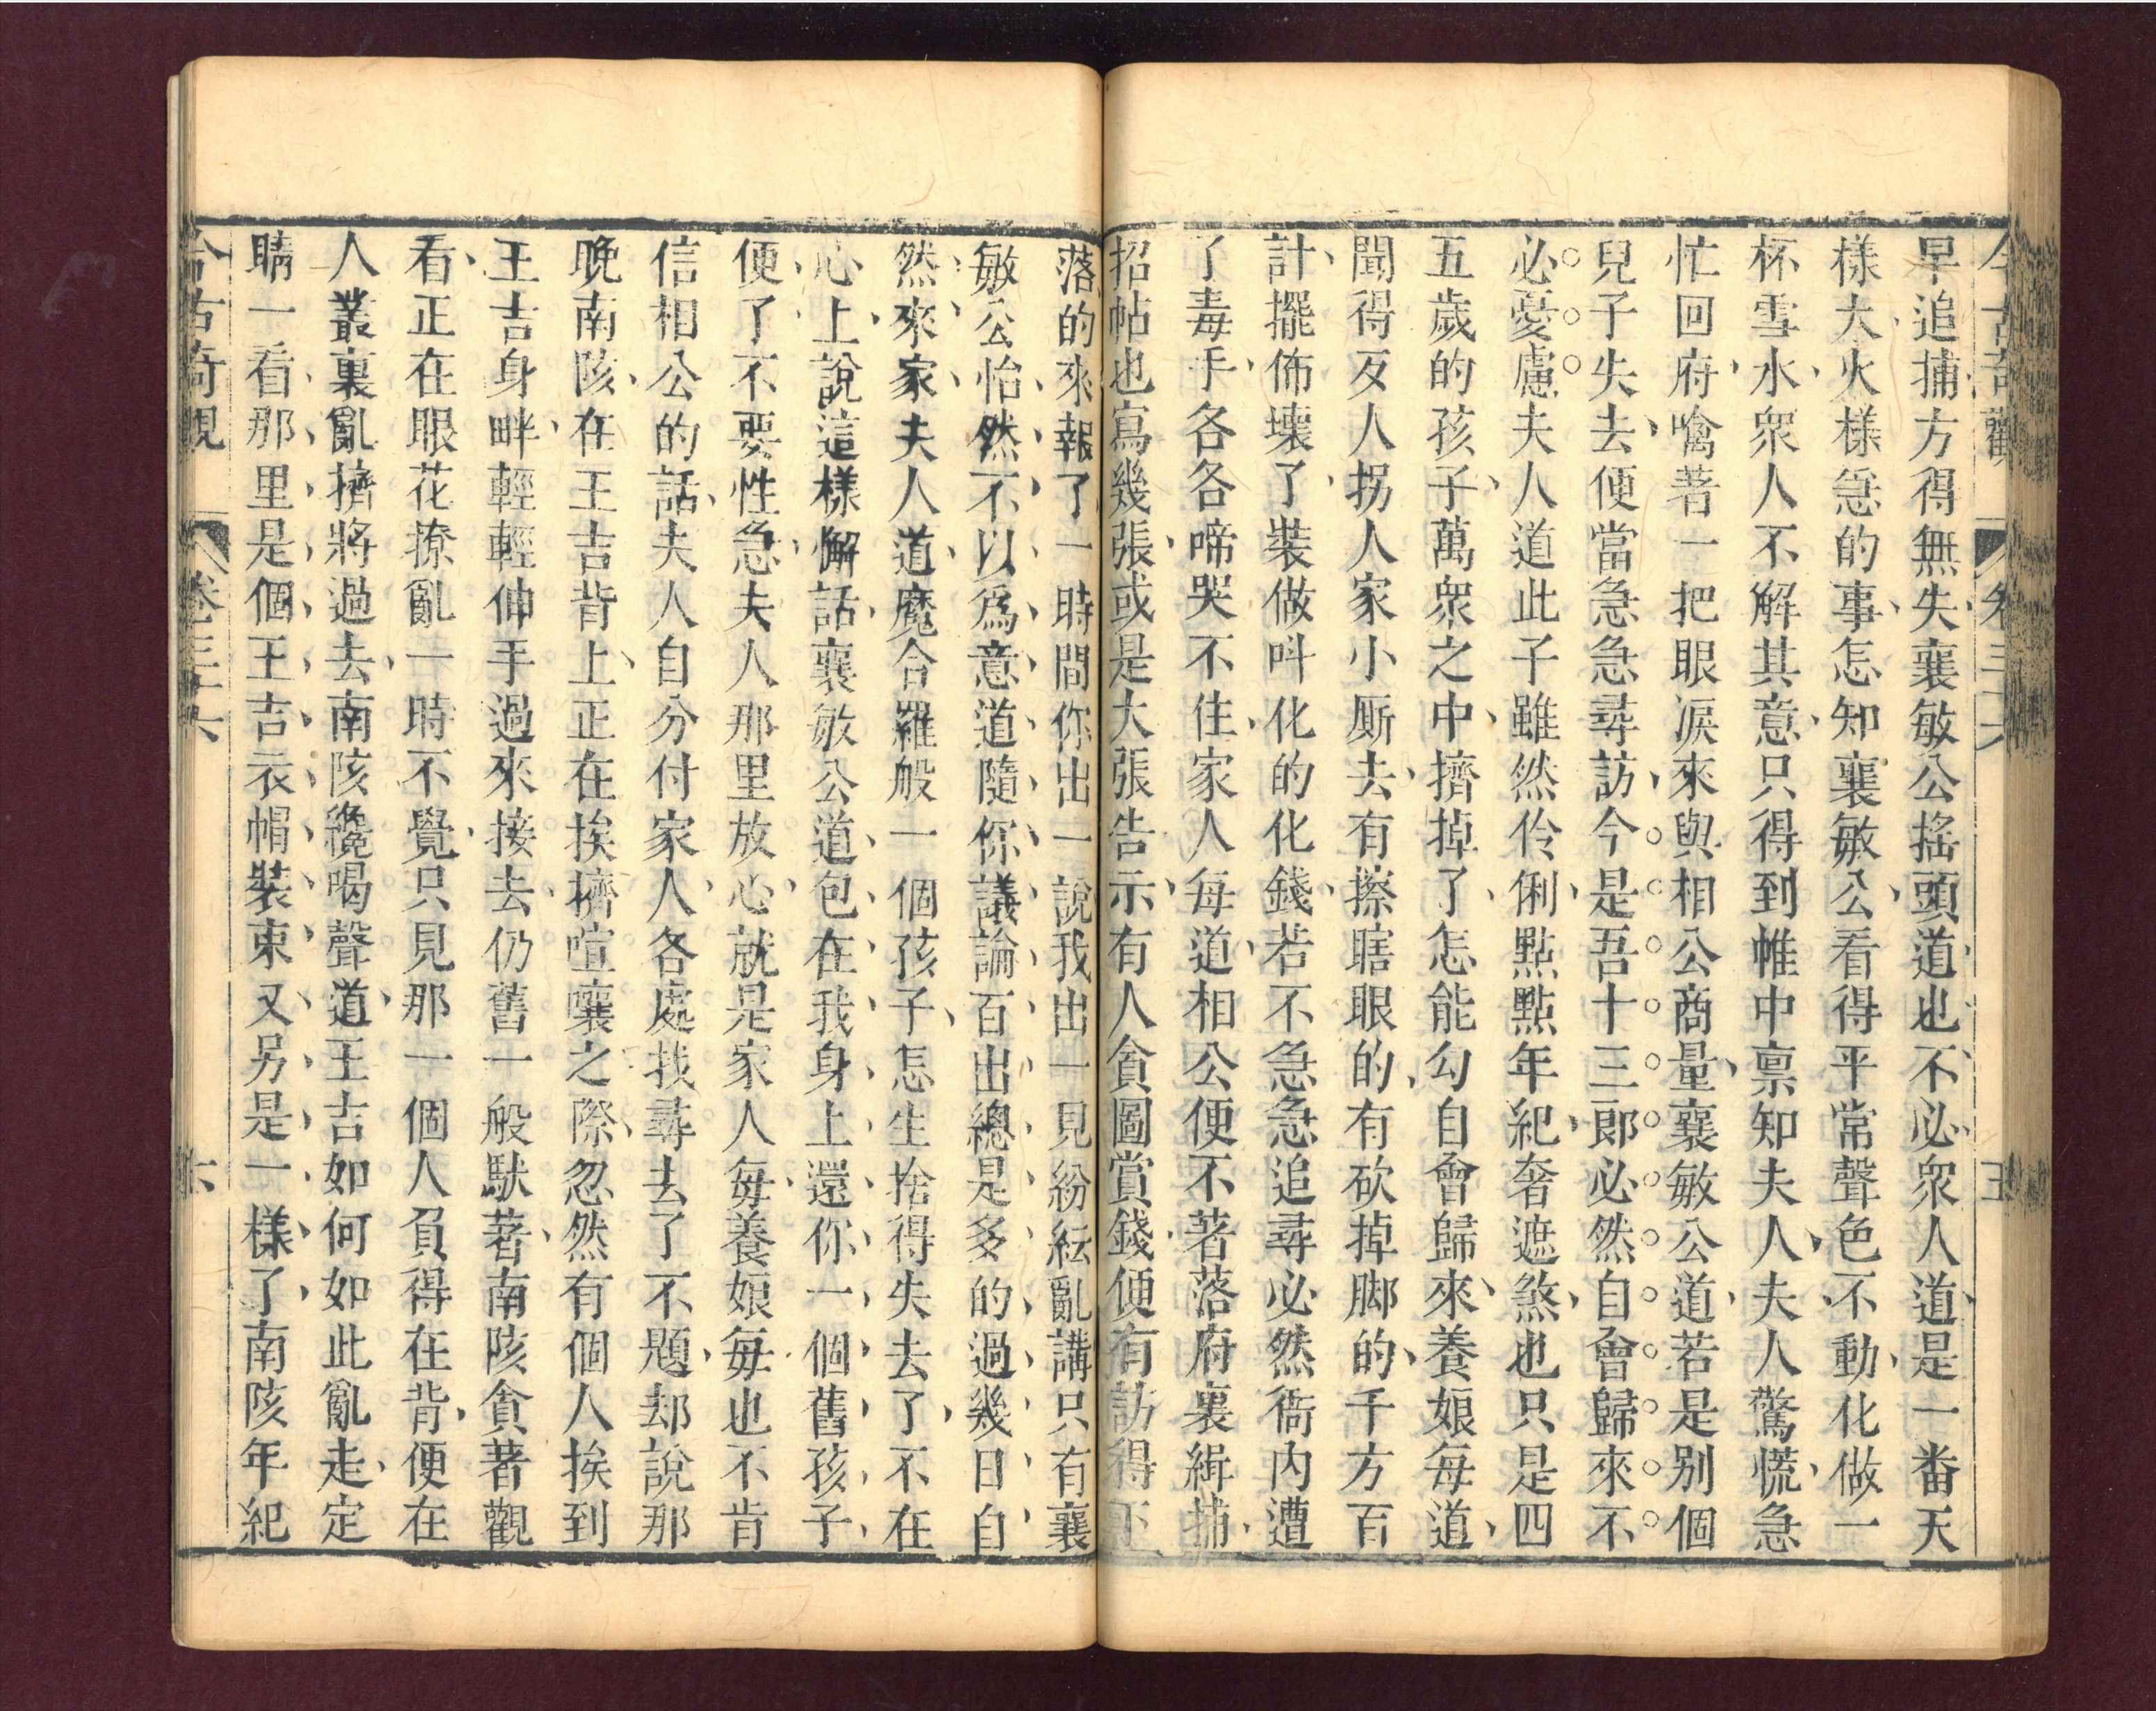 今古奇觀 卷三十六 五
早追捕方得無失襄敏公搖頭道也不必衆人道是一番天
樣大火樣急的事怎知襄敏公看得平常聲色不動化做一
杯雪水衆人不解其意只得到帷中禀知夫人夫人驚慌急
忙回府噙著一把眼淚來與相公商量襄敏公道若是别個
兒子失去便當急急尋訪今是吾十三郎必然自會歸來不
必憂慮夫人道此子雖然伶俐點點年紀奢遮煞也只是四
五歲的孩子萬衆之中擠掉了怎能勾自會歸來養娘每道
聞得歹人拐人家小厮去有擦瞎眼的有砍掉脚的千方百
計擺佈壞了裝做叫化的化錢若不急急追尋必然衙內遭
了毒手各各啼哭不住家人每道相公便不著落府裏緝捕
招帖也寫幾張或是大張告示有人貪圖賞錢便有訪得下
落的來報了一時間你出一說我出一見紛紜亂講只有襄
敏公怡然不以爲意道隨你議論百出總是多的過幾日自
然來家夫人道魔合羅般一個孩子怎生捨得失去了不在
心上說這樣懈話襄敏公道包在我身上還你一個舊孩子
便了不要性急夫人那里放心就是家人每養娘每也不肯
信相公的話夫人自分付家人各處找尋去了不題却說那
晚南陔在王吉背上正在挨擠喧嚷之際忽然有個人挨到
王吉身畔輕輕伸手過來接去仍舊一般馱著南陔貪著觀
看正在眼花撩亂一時不覺只見那一個人負得在背便在
人叢裏亂擠將過去南陔纔喝聲道王吉如何如此亂走定
睛一看那里是個王吉衣帽裝束又另是一樣了南陔年紀
今古奇觀 卷三十六 六